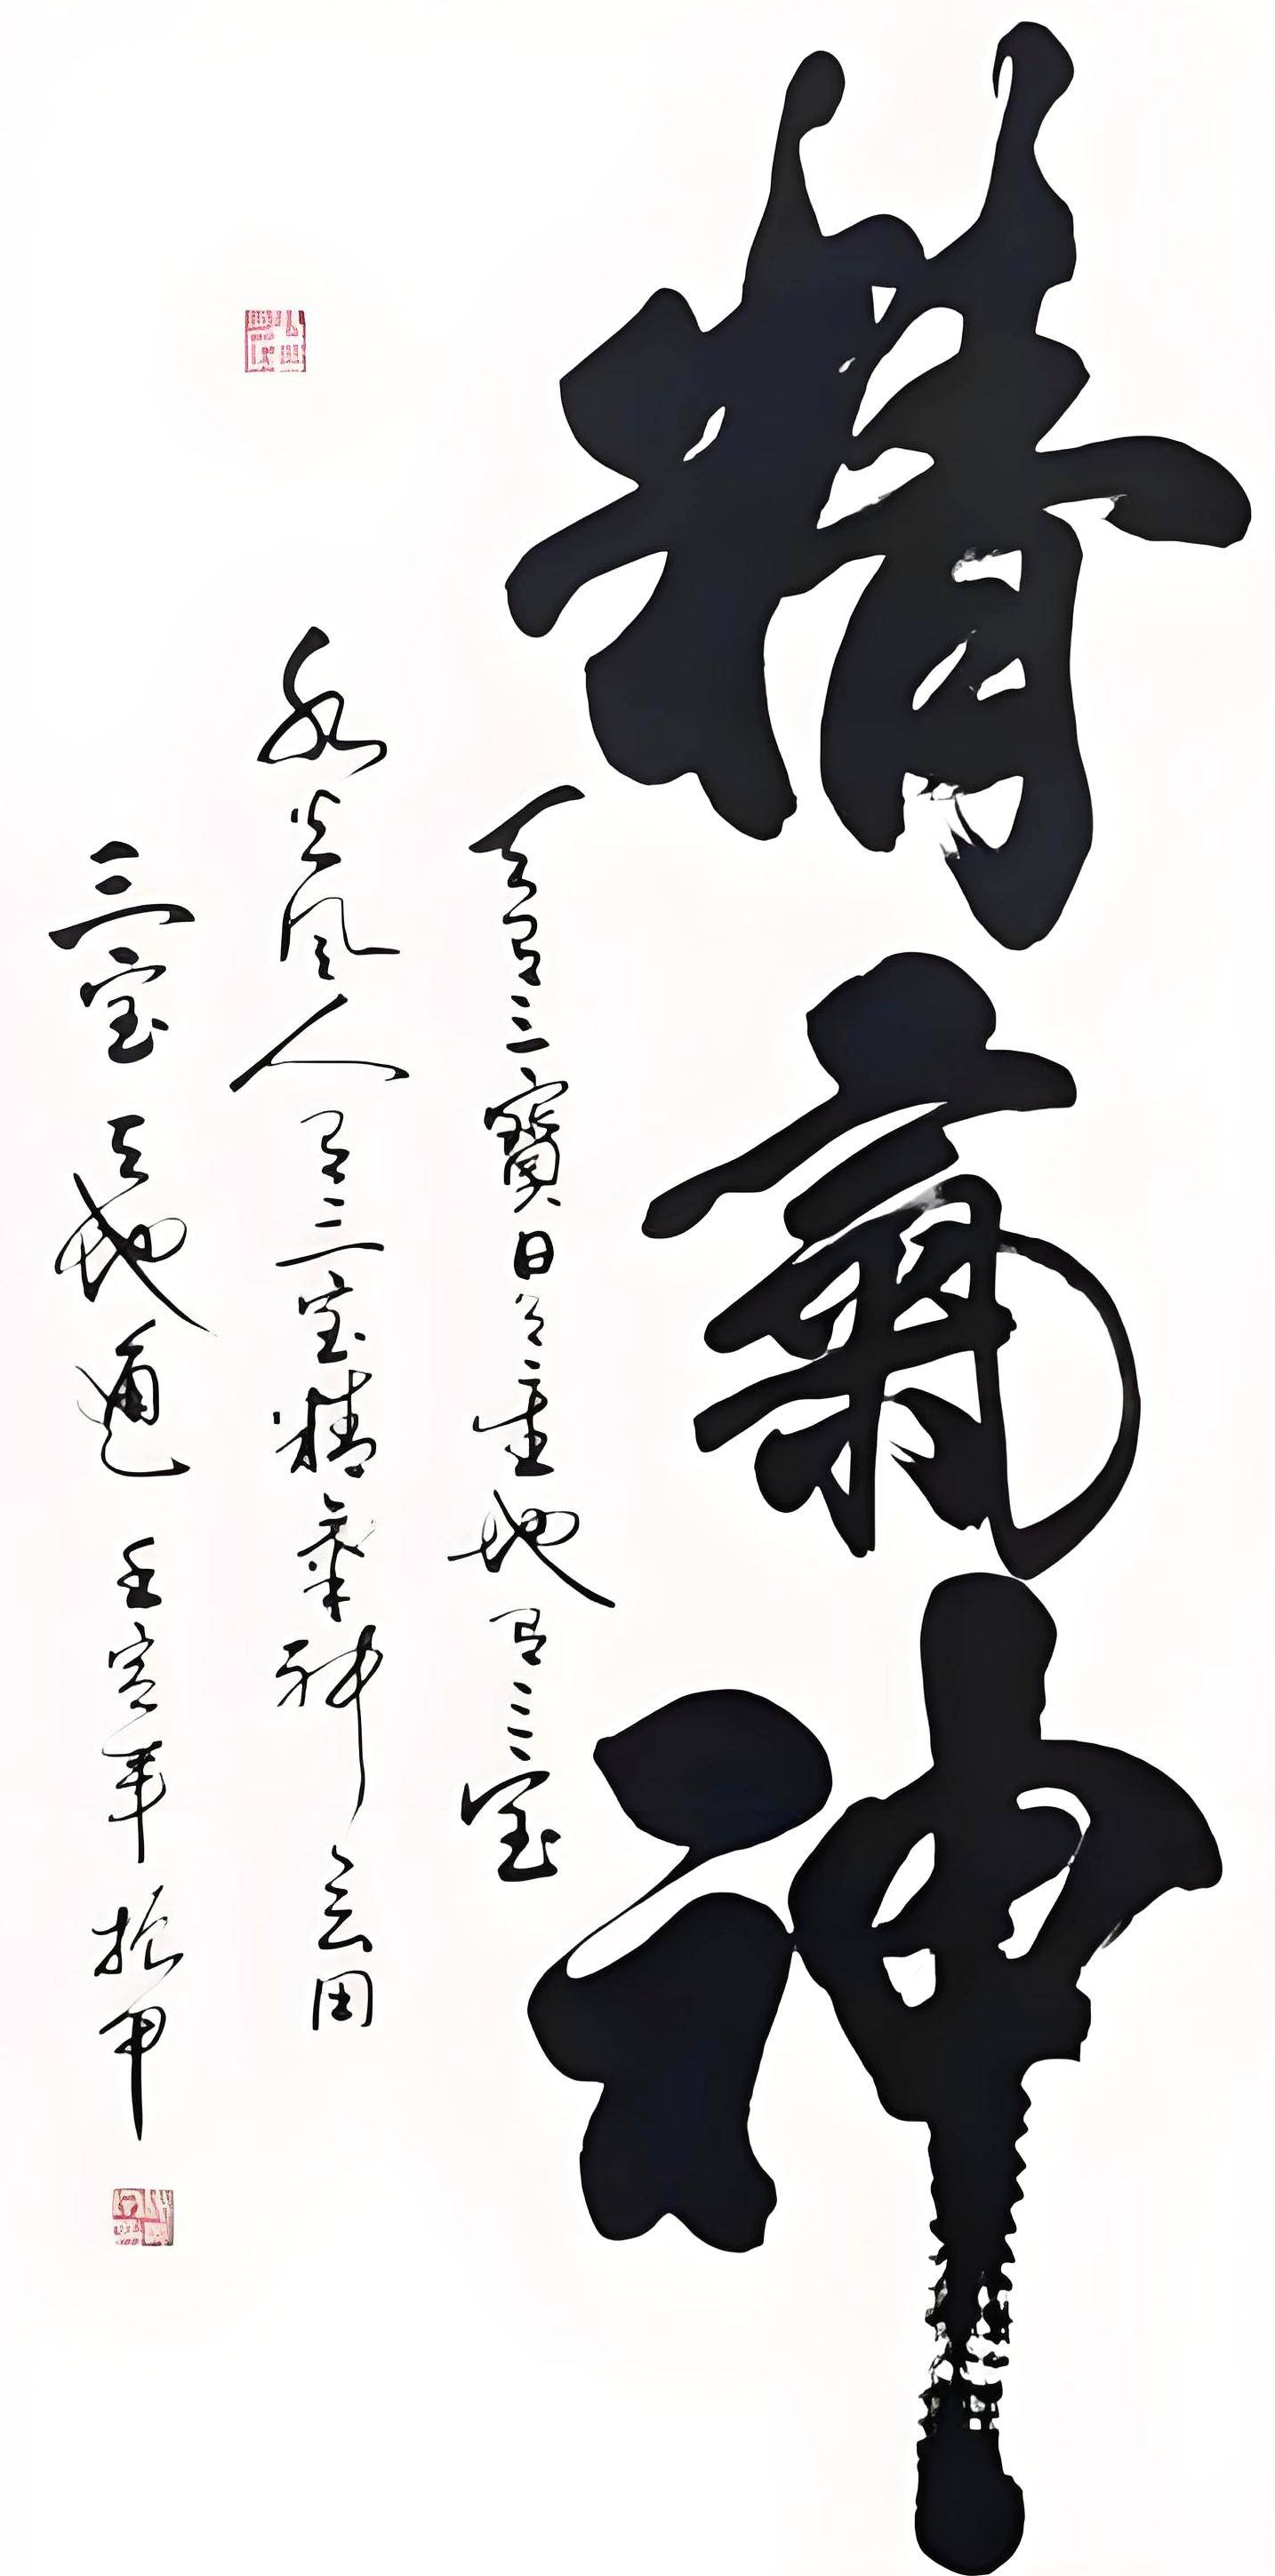 精氣神
天有三寶日月星地有三宝
水火风人有三宝精氣神善用
三宝天地通壬寅年振甲